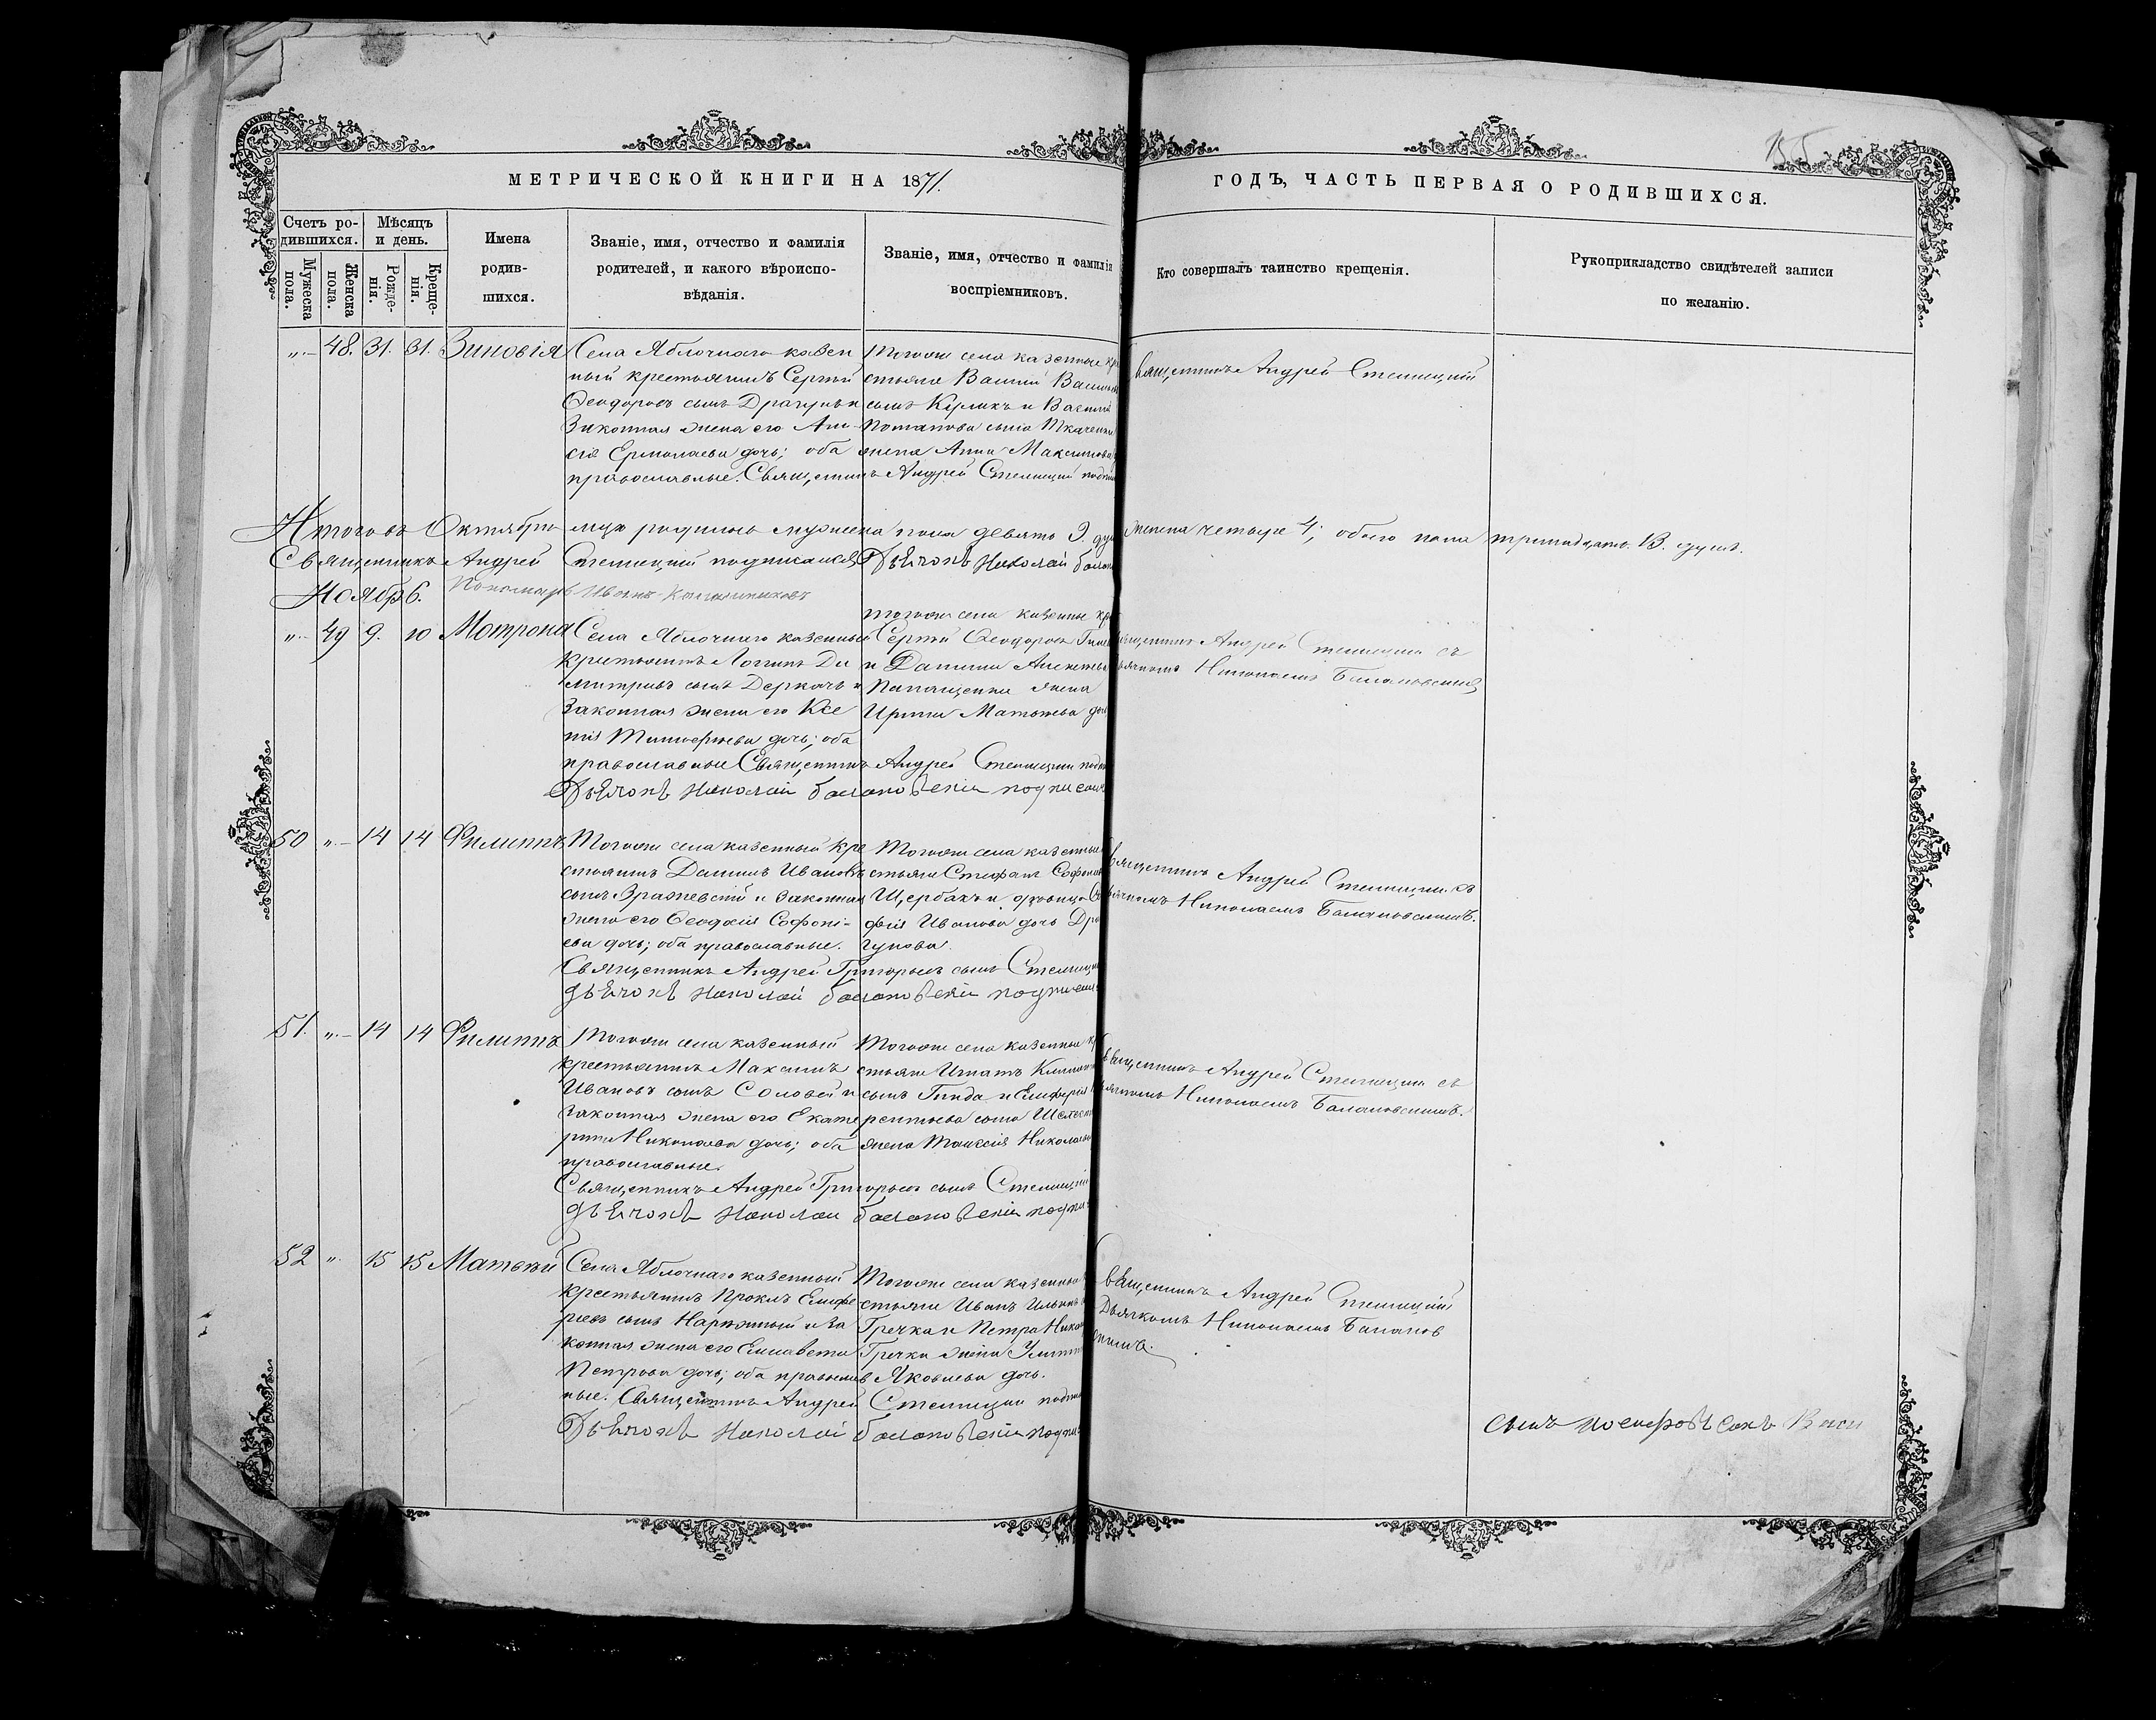 155
МЕТРИЧЕСКОЙ КНИГИ НА 1871.
ГОДЪ, ЧАСТЬ ПЕРВАЯ О РОДИВШИХСЯ.
Счетъ ро-
дившихся.
Мужеска пола.
Женска пола.
Мѣсяцъ
и день.
Рожде-
нія.
Креще-
нія.
Имена
родив-
шихся.
Званіе, имя, отчество и фамилія
родителей, и какого вѣроиспо-
вѣданія.
Званіе, имя, отчество и фамилія
воспріемниковъ.
Кто совершалъ таинство крещенія.
Рукоприкладство свидѣтелей записи
по желанію.
„ 48. 31. 31. Зиновія
Села Яблочнаго казен
ный крестьянинъ Сергѣй
Ѳеодоровъ сынъ Драгунъ и
Законная жена его Ани-
сія Ермолаева дочь; оба
православные. Священникъ Андрей Стеллецкій
Тогоже села казенные кре
стьяне Василій
сынъ Куликъ и Василія
Потапова сына Ткаченка
жена Анна Максимова
Священникъ Андрей Стеллецкій
Итого въ Октябрѣ мцѣ родилось мужеска пола девять 9. душ женска четыре 4; обоего пола тринадцать 13. душъ.
Священникъ Андрей Стеллецкій подписался Дьячокъ Николай
Ноябрь. Пономарь Иванъ
„ 49 9. 10 Матрона
Села Яблочнаго казенный
крестьянинъ Логинъ Ди
митріевъ сынъ Деркачъ и
Законная жена его Ксе
нія Тимофеева дочь; оба
православные Священникъ Андрей Стеллецкій
Дьячокъ Николай Балановскій подписался
тогоже села казенные кре
Сергѣй Ѳеодоровъ
и Даніила Алексѣева
жена
Ирина Матвѣева дочь
Священникъ Андрей Стеллецкій съ
дьячкомъ Николаемъ Балановскимъ
50 „ 14 14 Филиппъ
Тогоже села казенный кре
стьянинъ Даніилъ Ивановъ
сынъ Зражевскій и законная
жена его Ѳеодосія Софоні-
ева дочь; оба православные.
Священникъ Андрей Григорьевъ сынъ Стеллецкій
Дьячокъ Николай Балановскій подписался
Тогоже села казенные
стьяне Стефанъ Софоніевъ
Щербакъ и дѣвица Со
фія Иванова дочь Дра
гунова.
Священникъ Андрей Стеллецкій съ
дьячкомъ Николаемъ Балановскимъ.
51. „ 14 14 Филиппъ
Тогоже села казенный
крестьянинъ Максимъ
Ивановъ сынъ Соловей и
законная жена его Екате
рина Николаева дочь; оба
православные.
Священникъ Андрей Григорьевъ сынъ Стеллецкій
Дьячокъ Николай Балановскій
Тогоже села казенные кр
стьяне Игнатъ
сынъ Гинда и
рентьева сына
жена Таисія Николаева
Священникъ Андрей Стеллецкій съ
дьячкомъ Николаемъ Балановскимъ.
52 „ 15 15 Матвѣй
Села Яблочнаго казенный
крестьянинъ Проклъ Елефе
ріевъ сынъ Нарѣжный и За
конная жена его Елисавета
Петрова дочь; оба православ
ные. Священникъ Андрей Стеллецкій
Дьячокъ Николай Балановскій
Тогоже села казенные
стьяне Иванъ Ильинъ
Гречка и Петра
Гречки жена
Яковлева дочь.
Священникъ Андрей Стеллецкій
Дьячкомъ Николаемъ Баланов
скимъ.
сынъ